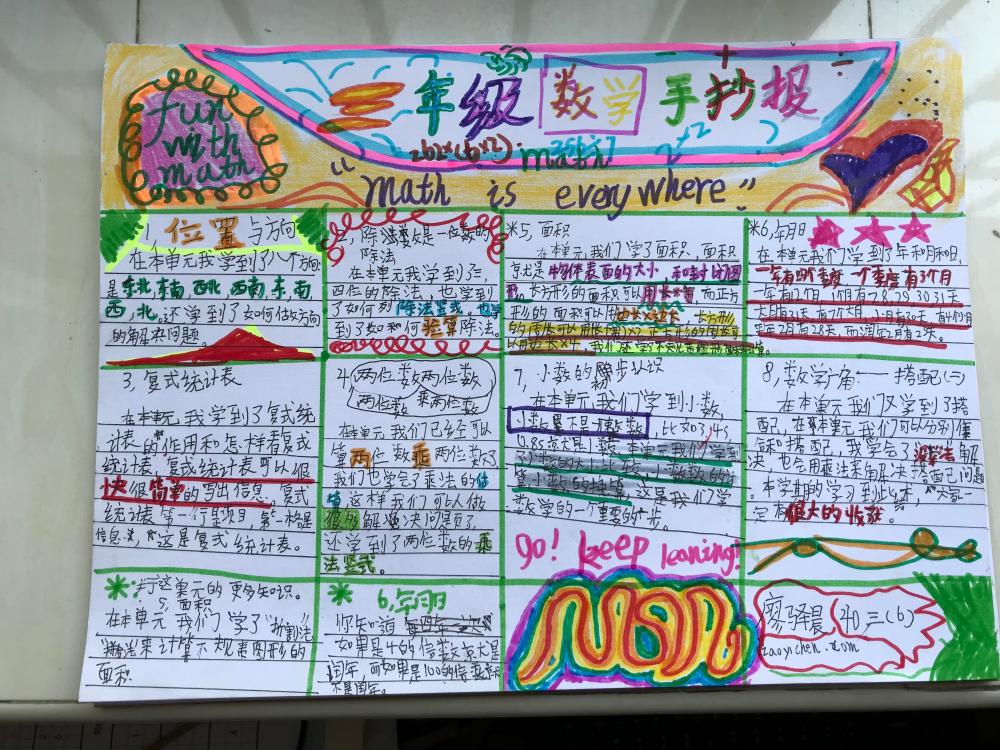 fun
with
math
三年级数学手抄报
262×(6×2)
math
2×2
"math is everywhere"
1、位置与方向
在本单元我学到了八个方向
是东北,东南,西北,西南,东,南,
西,北。还学到了如何估队方向
的解决问题。
2、除数是一位数的
除法
在本单元我学到三,
四位的除法,也学到
了如何列除法竖式。也学
到了如和何验算除法。
※5、面积
在本单元我们学了面积,面积
就是物体表面的大小,和封闭图
形,长方形的面积可以用长×宽,而正方
形的面积可以用边长×边长,长方形
的周长可以用(长+宽)×2,正方形的周长可
以用边长×4,
※6、年月日
在本单元我们学到了年和月和日,
一年有四个季度,一个季度有3个月
一年有12月,1月有28.29.30.31天
大月有31天,有7个大月,小月有30天,有4个小月
平年2月有28天,而闰年2月有29天。
3、复式统计表
在本单元,我学到了复式统
计表的作用和怎样看复式
统计表,复式统计表可以很
快很简单的写出信息,复式
统计表第一行是项目,第二格是
信息,这是复式统计表。
4、两位数两位数
两位数乘两位数
在本单元我们已经可以
算两位数乘两位数了
我们也学会了乘法的估
算,这样我们可以做
很多解决问题了,
还学到了两位数的乘
法竖式。
7、小数的初步认识
在本单元我们学到小数,
小数是不是整数,比如3.45
0.85就是小数,本单元我们学到
了小数的大小比较,小数数的的
算小数的加算,这是我们学
数学的一个重要的一步。
go! keep leaning!
8、数学广角——搭配(二)
在本单元我们又学到了搭
配,在本单元我们可以分别体
会和搭配,我学会了连线法解
决,也会用乘法来解决搭配问题
。本学期的学习到此结束,大家一
定有很大的收获。
※于这单元的更多知识。
5、面积
在本单元我们学了"割法
"拼法来计算不规表图形的
面积
※6、年月日
你知道每四年一次
如果是4的倍数就是
闰年,而如果是100的倍数就
不是闰年。
廖驿晨 40 三(6)